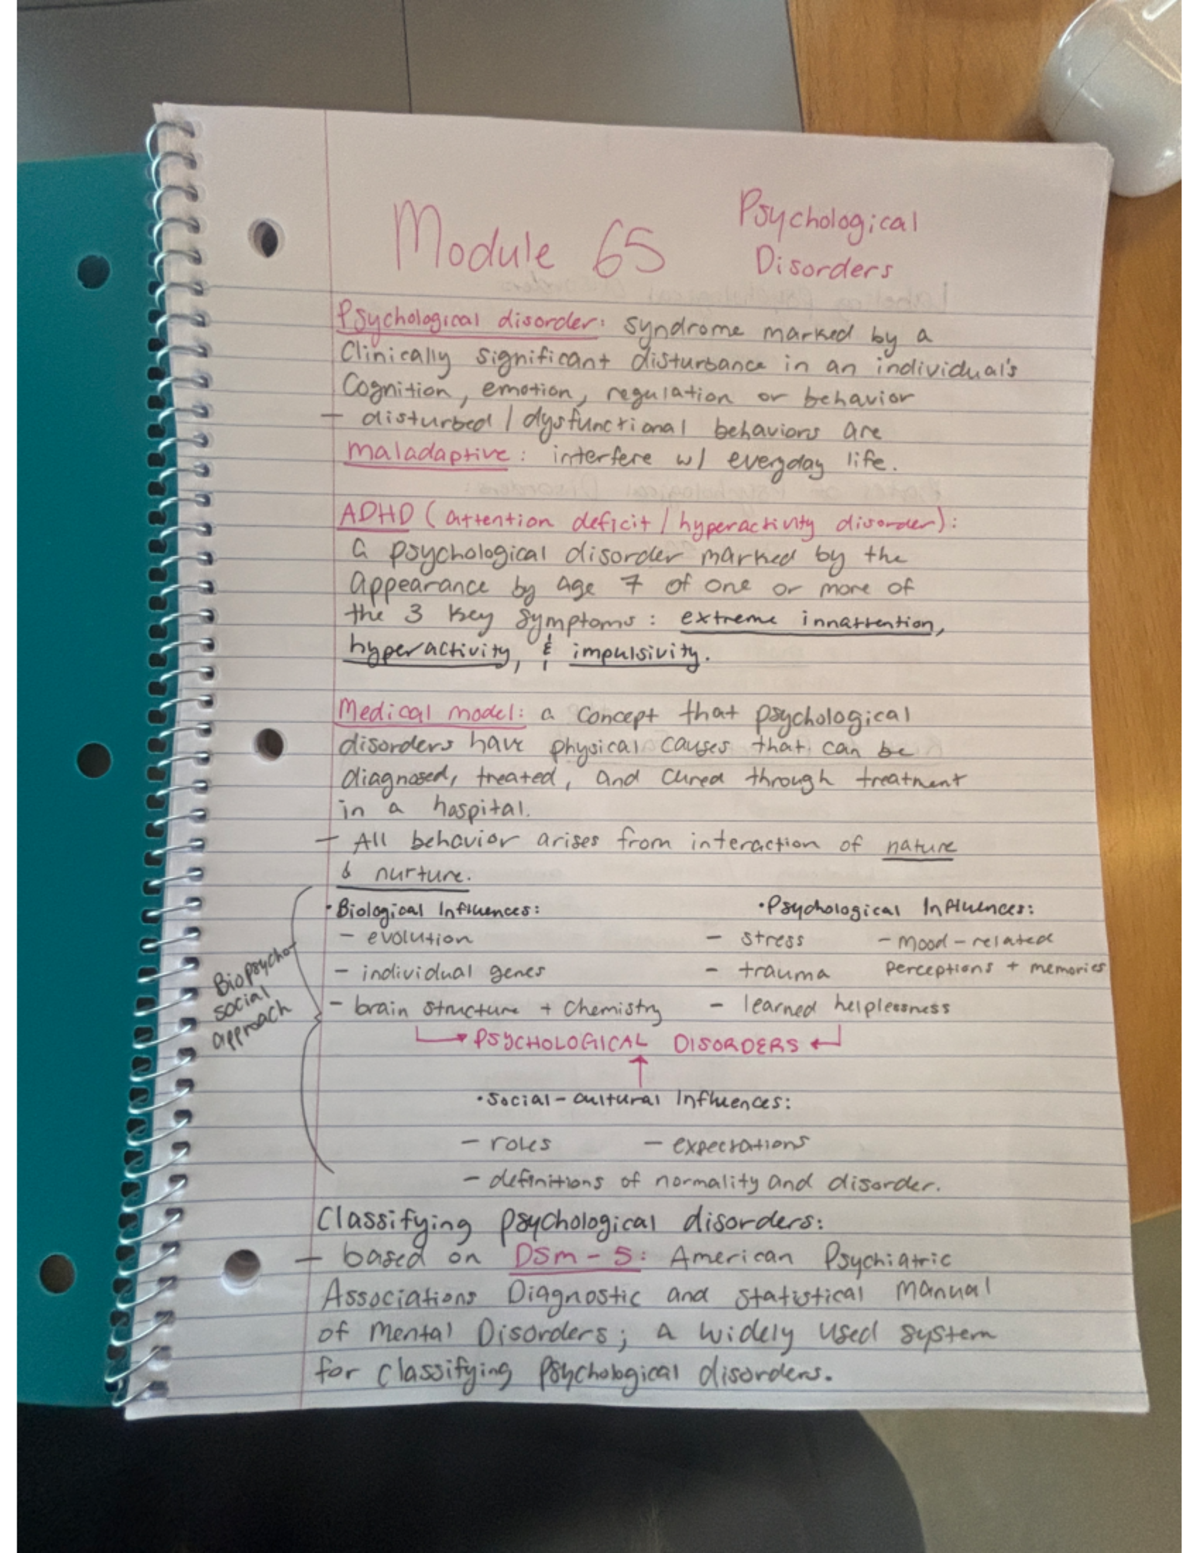 Module 65
Psychological
Disorders
Psychological disorder: syndrome marked by a
Clinically significant disturbance in an individual's
Cognition, emotion, regulation or behavior
- disturbed / dysfunctional behaviors are
maladaptive: interfere w/ everyday life.
ADHD (attention deficit / hyperactivity disorder):
a psychological disorder marked by the
appearance by age 7 of one or more of
the 3 key symptoms: extreme innattention,
hyperactivity, & impulsivity.
Medical model: a concept that psychological
disorders have physical causes that can be
diagnosed, treated, and cured through treatment
in a hospital.
- All behavior arises from interaction of nature
& nurture.
Biopsycho
social
approach
• Biological Influences:
- evolution
- individual genes
- brain structure + chemistry
• Psychological Influences:
- stress
- trauma
- learned helplessness
- mood-related
perceptions + memories
PSYCHOLOGICAL DISORDERS
• Social-cultural Influences:
- roles - expectations
- definitions of normality and disorder.
Classifying psychological disorders:
- based on DSM-5: American Psychiatric
Associations Diagnostic and Statistical Manual
of Mental Disorders; a widely used system
for classifying psychological disorders.